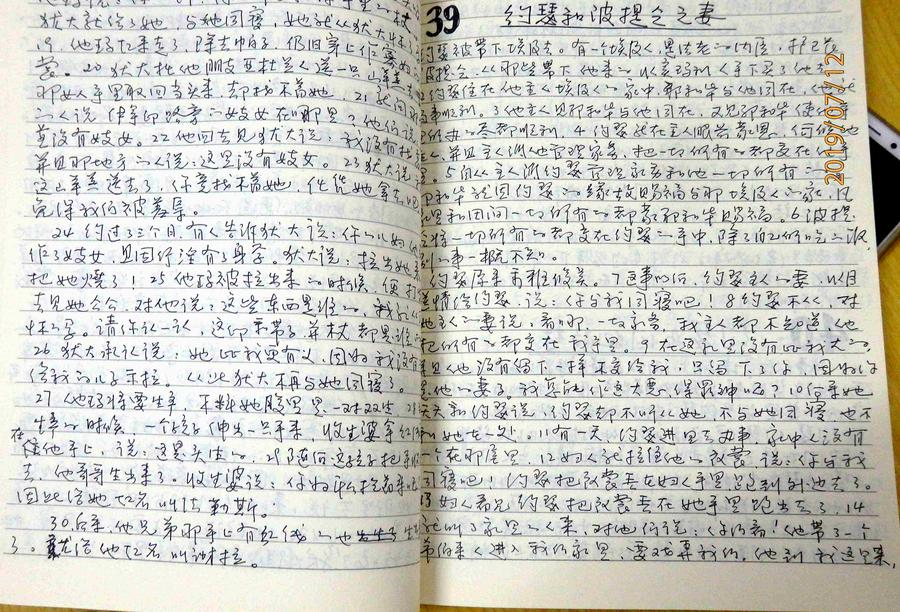 犹大就给了她，与她同寝，她就从犹大怀了孕。
19.他玛起来走了，除去帕子，仍旧穿上作寡妇的衣
裳。20犹大托他朋友亚杜兰人送一只山羊羔去
那女人手里取回当头来，却找不着她。21就问那
的人说：伊拿印路旁的妓女在哪里？他们说：
并没有妓女。22他回去见犹大说：我没有找
并且那地方的人说：这里没有妓女。23犹大说：
这山羊羔送去了，你竟找不着她，任凭她拿去吧
免得我们被羞辱。
24.约过了三个月，有人告诉犹大说：你的儿妇他
作了妓女，且因行淫有了身孕。犹大说：拉出她来
把她烧了！25他玛被拉出来的时候，便打
去见她公公，对他说：这些东西是谁的，我就从
怀的孕。请你认一认，这印、带子、并杖都是谁的
26.犹大承认说：她比我更有义，因为我没有
给我的儿子示拉。从此犹大不再与她同寝了。
27他玛将要生产，不料她腹里是一对双生。28
生产的时候，一个孩子伸出一只手来，收生婆拿红线
在他手上，说：这是头生的。29随后这孩子把手收
去，他哥哥生出来了。收生婆说：你为什么抢着来呢
因此给他起名叫法勒斯。
30.后来，他兄弟那手上有红线的也生出
了。就给他起名叫谢拉。
39 约瑟和波提乏之妻
约瑟被带下埃及去。有一个埃及人，是法老的内臣，护卫长
波提乏，从那些带下他来的以实玛利人手下买了他去
2约瑟住在他主人埃及人的家中，耶和华与他同在，他就
百事顺利。3他主人见耶和华与他同在，又见耶和华使他
手里所办的尽都顺利，4约瑟就在主人眼前蒙恩，伺候他
主人，并且主人派他管理家务，把一切所有的都交在他
里。5自从主人派约瑟管理家务和他一切所有的
耶和华就因约瑟的缘故赐福与那埃及人的家，凡
家里和田间一切所有的都蒙耶和华赐福。6波提
乏将一切所有的都交在约瑟的手中，除了自己所吃的饭
别的事一概不知。
约瑟原来秀雅俊美。7这事以后，约瑟主人的妻，以目
送情给约瑟，说：你与我同寝吧！8约瑟不从，对
他主人的妻说：看哪，一切家务，我主人都不知道，他
把所有的都交在我手里。9.在这家里没有比我大的
并且他没有留下一样不交给我，只留下了你，因为你
是他的妻子。我怎能作这大恶，得罪神呢？10后来她
天天和约瑟说，约瑟却不听从她，不与她同寝，也不
和她在一处。11有一天，约瑟进屋里去办事，家中人没有
一个在那屋里，12妇人就拉住他的衣裳，说：你与我
同寝吧！约瑟把衣裳丢在妇人手里，跑到外边去了。
13妇人看见约瑟把衣裳丢在她手里跑出去了，14
就叫了家里的人来，对他们说：你们看！他带了一个
希伯来人进入我们家里，要戏弄我们。他到我这里来，
2019/07/12